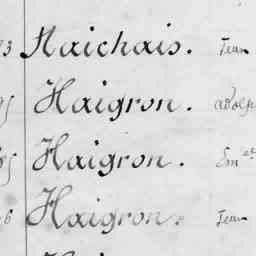 Haichais. Jean
Haigron. adolp
Haigron. Em^el
Haigron. Jean